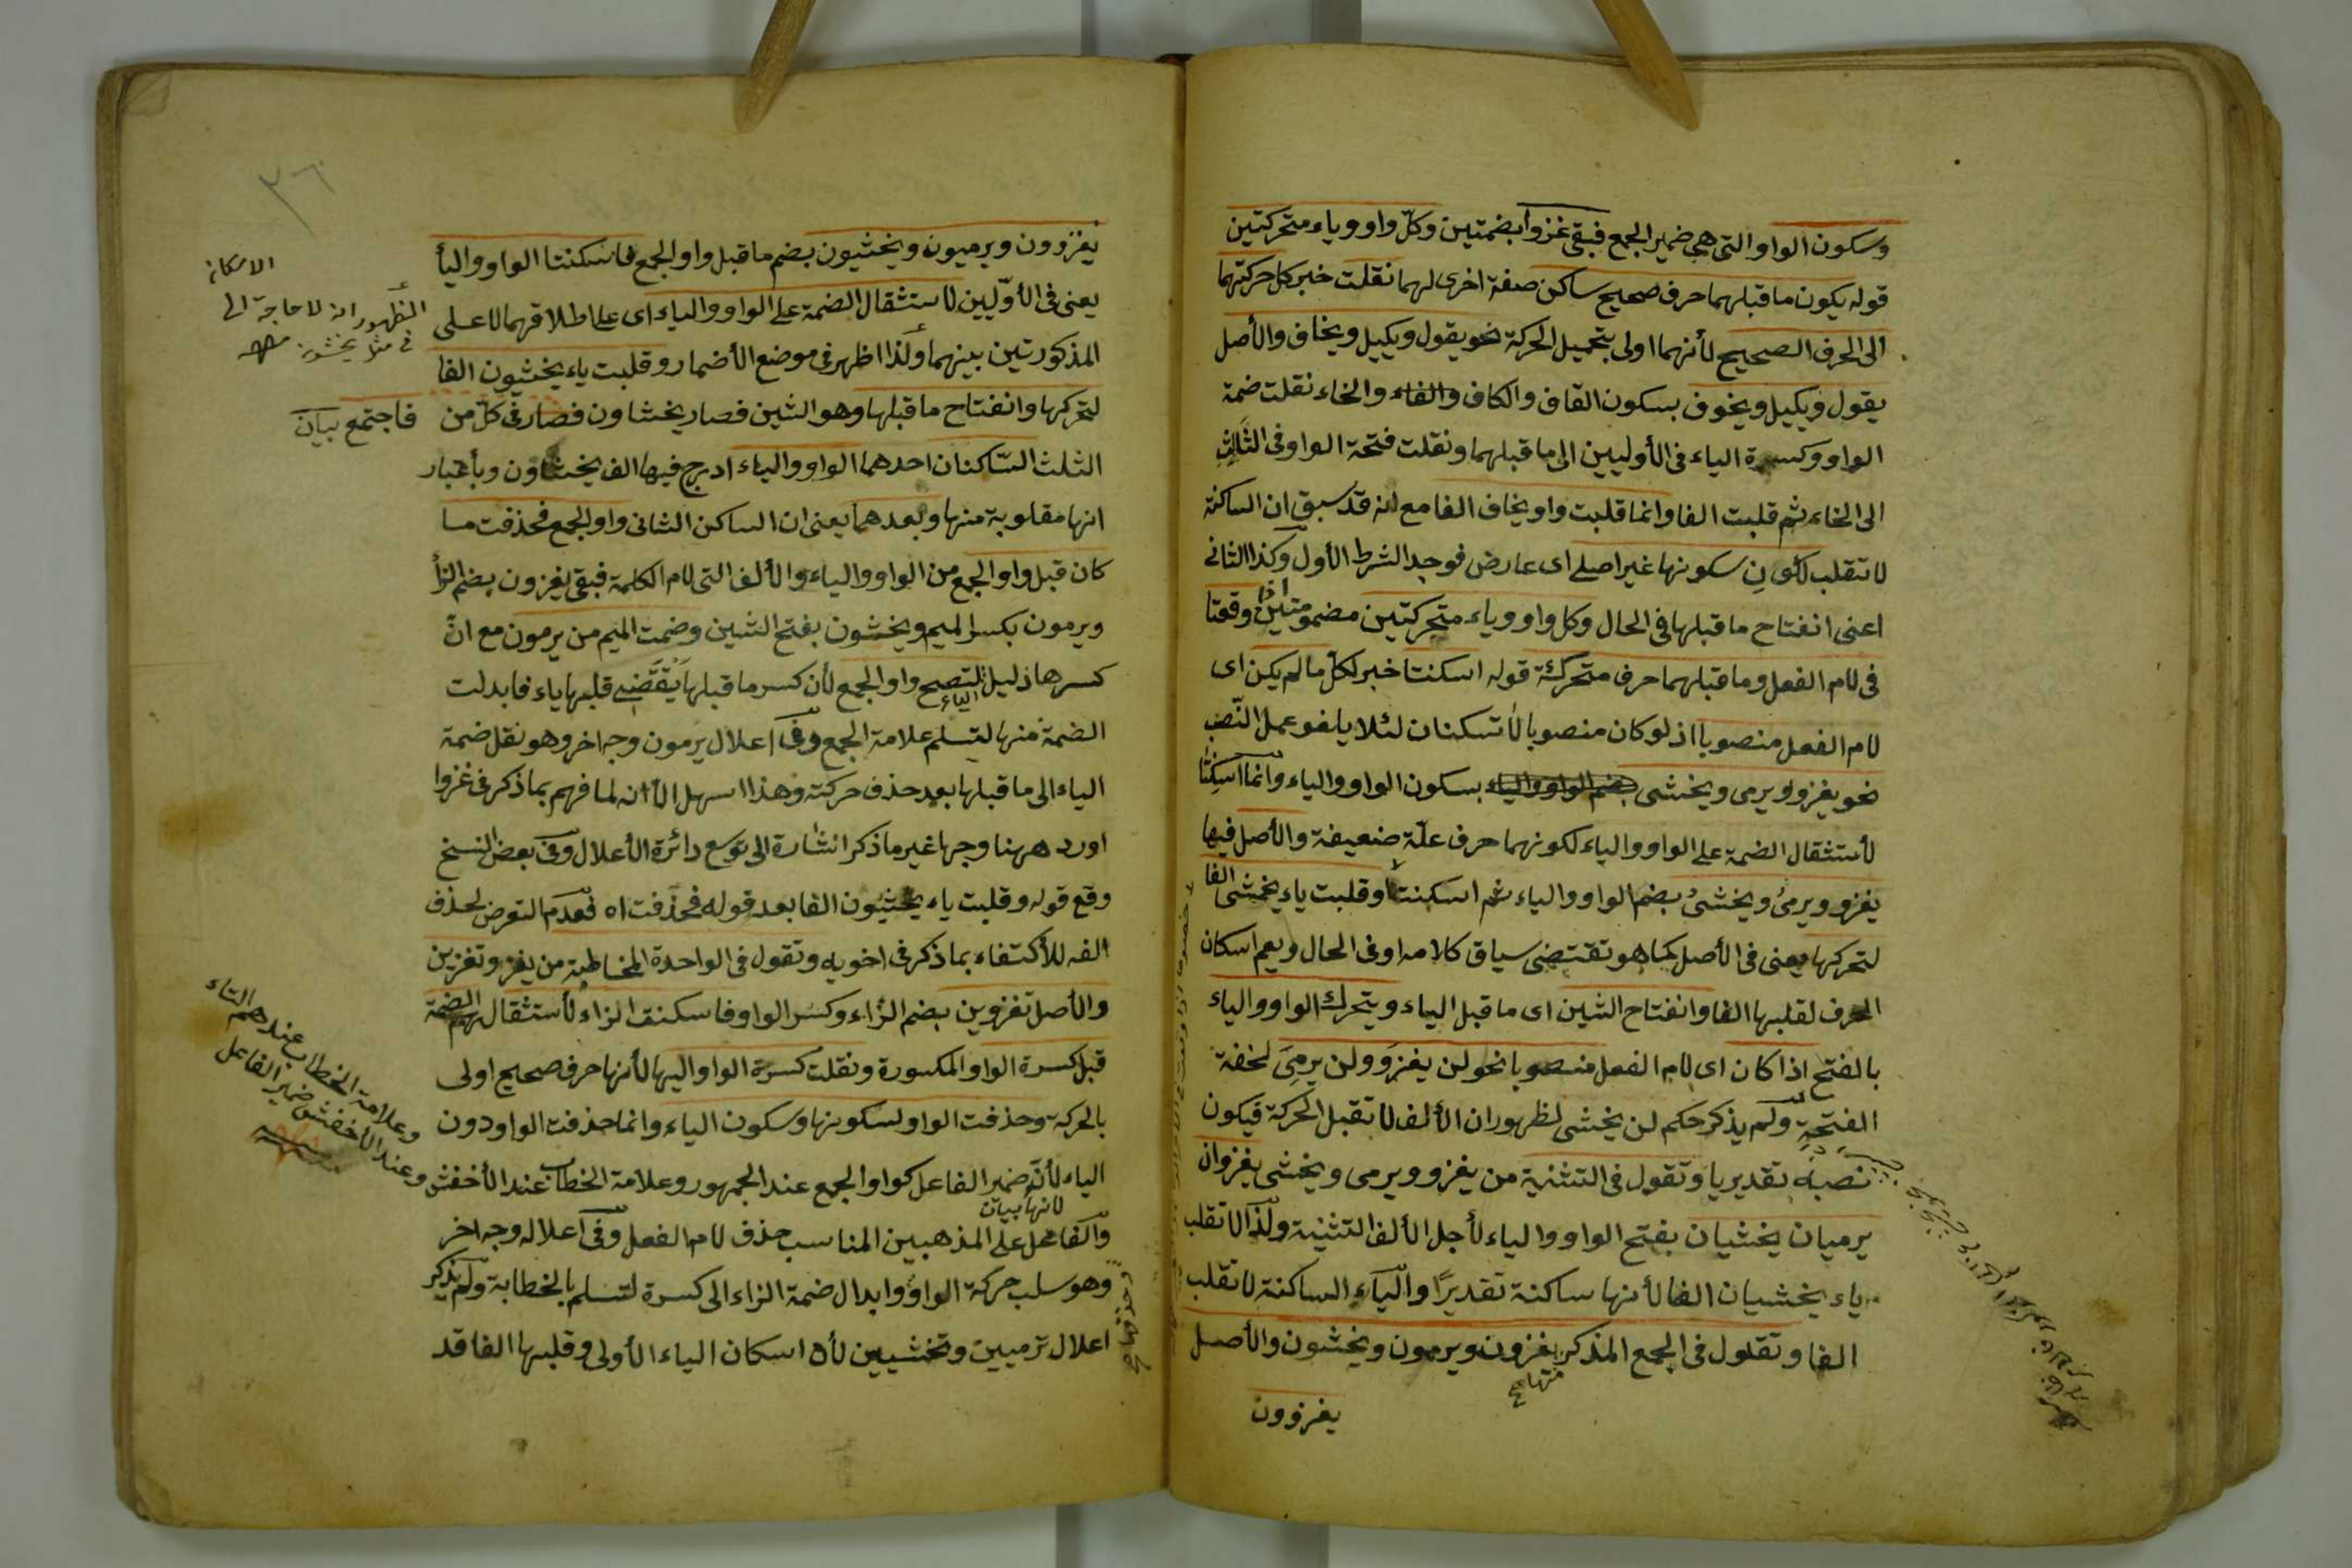 وسكون الواو التى هى ضمير الجمع فبقى غزوا بضمتين وكلّ واو وياء متحركتين
قوله يكون ما قبلهما حرف صحيح ساكن صفة اخرى لهما نقلت خبر كل حركتهما
الى الحرف الصحيح لأنهما اولى بتحميل الحركة نحو يقول ويكيل ويخاف والأصل
يقول ويكيل ويخوف بسكون القاف والكاف والخاء نقلت ضمة
الواو وكسرة الياء فى الأوليين الى ما قبلهما ونقلت فتحة الواو فى الثالث
الى الخاء ثم قلبت الفا وانما قلبت واو يخاف الفا مع انه قد سبق ان الساكنة
لا تنقلب لكون سكونها غير اصلى اى عارض فوجد الشرط الأول وكذا الثانى
اعنى انفتاح ما قبلها فى الحال وكل واو وياء متحركتين مضمومتين اذا وقعتا
فى لام الفعل وما قبلهما حرف متحركة قوله اسكنتا خبر لكل ما لم يكن اى
لام الفعل منصوبا اذ لو كان منصوبا لا تسكنان لئلا يلغو عمل النّصب
نحو يغزو ويرمى ويخشى بسكون الواو والياء وانما اسكنتا
لأستثقال الضمة على الواو والياء لكونهما حرف علّة ضعيفة والأصل فيها
يغزو ويرمىُ ويخشىُ بضم الواو والياء ثم اسكنتا وقلبت ياء يخشى الفا
لتحركها يعنى فى الأصل كما هو تقتضى سياق كلامه او فى الحال ويعم اسكان
الحرف لقلبها الفا وانفتاح الشين اى ما قبل الياء ويتحرك الواو والياء
بالفتح اذا كان اى لام الفعل منصوبا نحو لن يغزوَ ولن يرمىَ لخفة
الفتحة ولم يذكر حكم لن يخشى لظهور ان الألف لا تقبل الحركة فيكون
نصبه تقديريا وتقول فى التثنية من يغزو ويرمى ويخشى يغزوان
يرميان يخشيان بفتح الواو والياء لأجل الألف التثنية ولذا لا تقلب
ياء يخشيان الفا لأنها ساكنة تقديرًا والياء الساكنة لا تقلب
الفا وتقول فى الجمع المذكر يغزون ويرمون ويخشون والأصل
منها
يغزوون
٣٦
يغزوون ويرميون ويخشيون بضم ما قبل واو الجمع فاسكنتا الواو واليأ
يعنى فى الأوّليين لاستثقال الضمة على الواو والياء اى على اطلاقهما لا على
المذكورتين بينهما ولذا اظهر فى موضع الأضمار وقلبت ياء يخشيون الفا
لتحركها وانفتاح ما قبلها وهو الشين فصار يخشاون فصار فى كلّ من
الثلث السّاكنان احدهما الواو والياء ادرج فيها الف يخشاون وبأعتبار
انها مقلوبة منها وبعدهما يعنى ان الساكن الثانى واو الجمع فحذفت ما
كان قبل واو الجمع من الواو والياء والألف التى لام الكلمة فبقى يغزون بضم الزأ
ويرمون بكسر الميم ويخشون بفتح الشين وضمت الميم من يرمون مع انّ
كسرها دليل الياء لتصح واو الجمع لأن كسر ما قبلها يقتضى قلبها ياء فابدلت
الضمة منها لتسلم علامة الجمع وفى اعلال يرمون وجه اخر وهو نقل ضمة
الياء الى ما قبلها بعد حذف حركته وهذا اسهل الا انه لما فهم بما ذكر فى غزوا
اورد ههنا وجها غير ما ذكر اشارة الى توسع دائرة الأعلال وفى بعض النسخ
وقع قوله وقلبت ياء يخشيون الفا بعد قوله فحذفت اه فعدم التعرض لحذف
الفه للأكتفاء بما ذكر فى اخويه وتقول فى الواحدة المخاطبة من يغزو تغزين
والأصل تغزوين بضم الزاء وكسر الواو فاسكنت الزاء لأستثقال الضمة
قبل كسرة الواو المكسورة ونقلت كسرة الواو اليها لأنها حرف صحيح اولى
بالحركة وحذفت الواو لسكونها وسكون الياء وانما حذفت الواو دون
الياء لأنّه ضمير الفاعل كواو الجمع عند الجمهور وعلامة الخطاب عند الأخفش
لانها
على المذهبين المناسب حذف لام الفعل وفى اعلاله وجه اخر
وهو سلب حركة الواو وابدال ضمة الزاء الى كسرة لتسلم بالخطابة ولم يذكر
اعلال ترميين وتخشيين لأن اسكان الياء الأولى وقلبها الفا قد
الاسكان
الظهور انه لا حاجة الى
فى مثل يخشون
فاجتمع
وعلامة الخطاب عندهم التاء
وعند الأخفش ضمير الفاعل